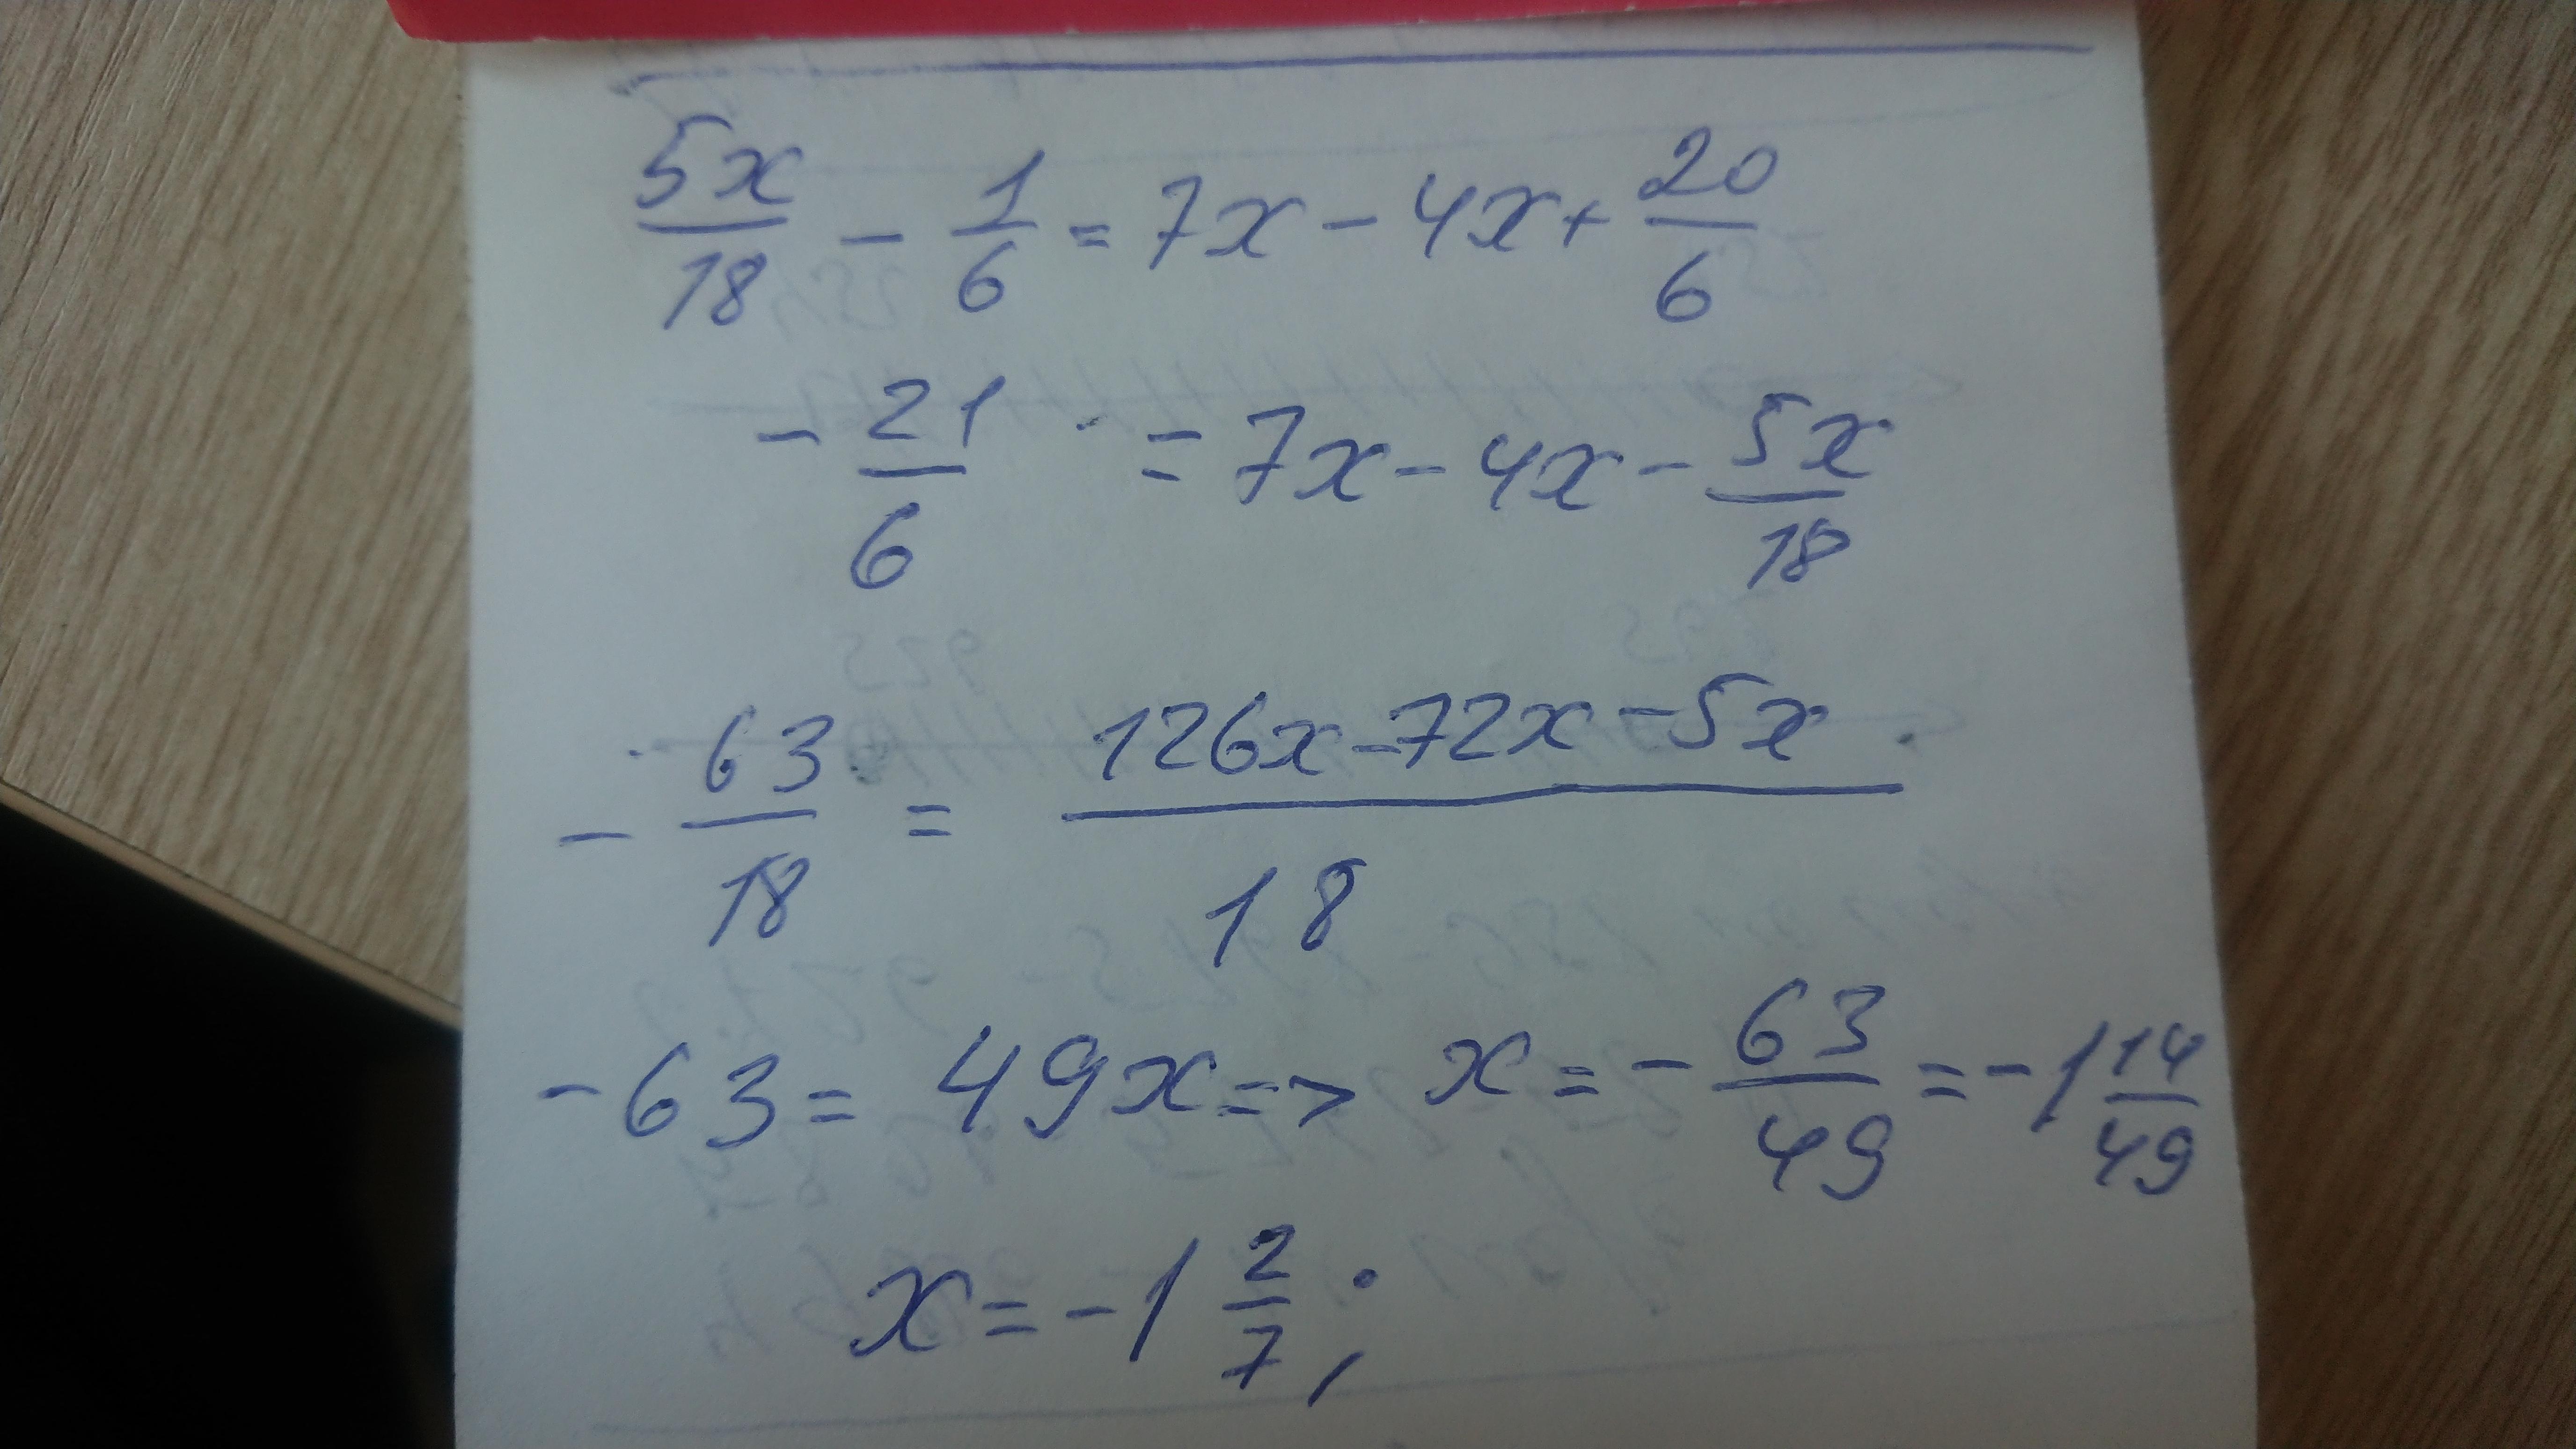 5x/18 - 1/6 = 7x - 4x + 20/6
- 21/6 = 7x - 4x - 5x/18
- 63/18 = (126x - 72x - 5x)/18
- 63 = 49x => x = - 63/49 = - 1 14/49
x = - 1 2/7;